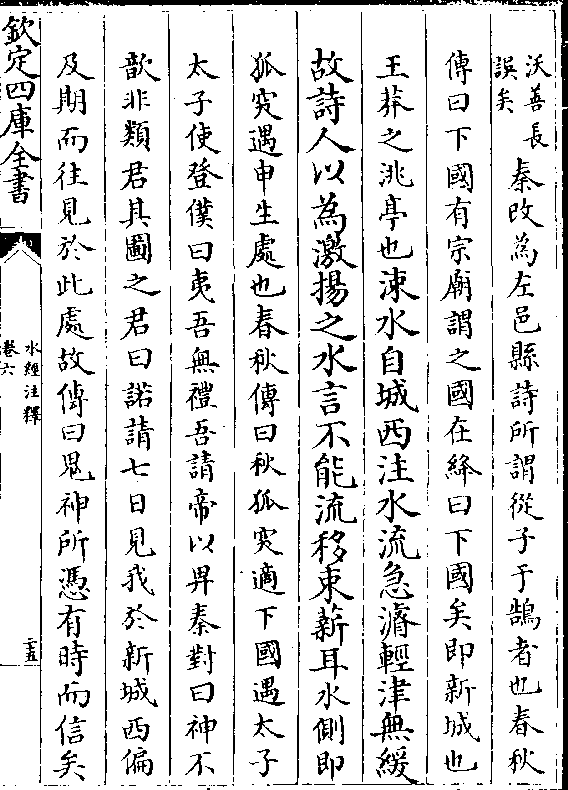 沃善長
誤矣
秦改為左邑縣詩所謂從子于鵠者也春秋
傳曰下國有宗廟謂之國在絳曰下國矣即新城也
王莽之洮亭也涑水自城西注水流急濬輕津無緩
故詩人以為激揚之水言不能流移束薪耳水側即
狐突遇申生處也春秋傳曰秋狐突適下國遇太子
太子使登僕曰夷吾無禮吾請帝以畀秦對曰神不
歆非類君其圖之君曰諾請七日見我於新城西偏
及期而往見於此處故傳曰鬼神所憑有時而信矣
欽定四庫全書
水經注釋
卷六